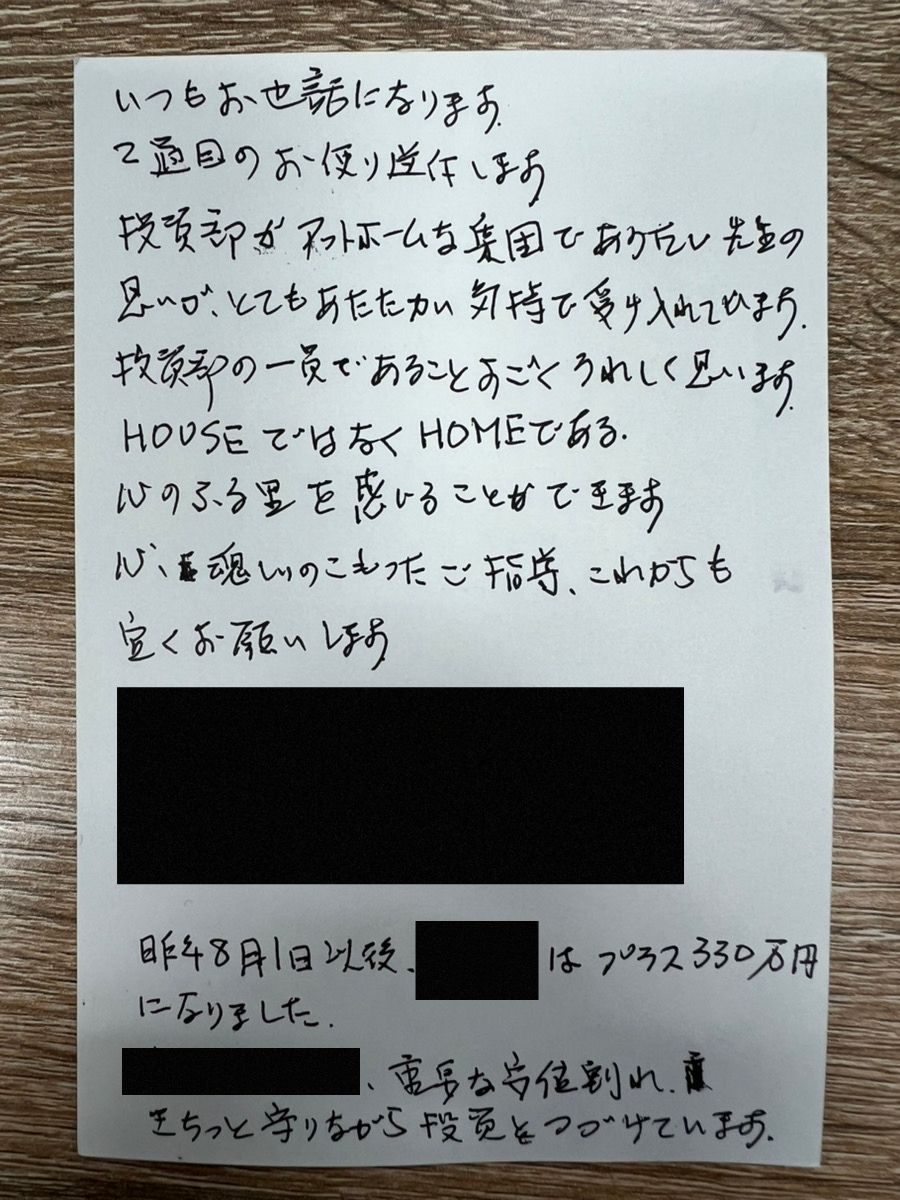 いつもお世話になります。
2通目のお便り送付します
投資部がアットホームな集団でありたい先生の
思いが、とてもあたたかい気持で受け入れています。
投資部の一員であることすごくうれしく思います。
HOUSEではなくHOMEである。
心のふる里を感じることができます
心、魂しいのこもったご指導、これからも
宜くお願いします
昨年8月1日以後、
はプラス330万円
になりました。
、重要な安値割れ、
きちっと守りながら投資をつづけています。